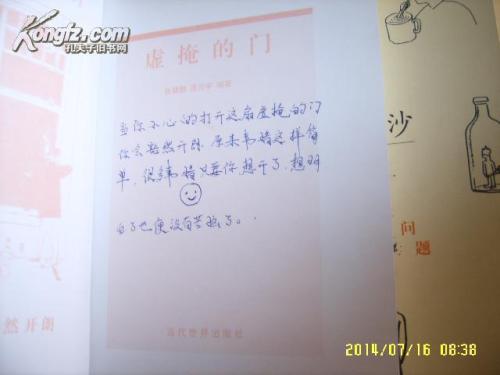 Kongfz.com
孔夫子旧书网
虚掩的门
编著
当你不小心的打开这扇虚掩的门
你会豁然开朗 原来事情这样简
单，很多事情只要你想开了，想明
白了也便没有苦恼了。
当代世界出版社
然开朗
沙
问
题
2014/07/16 08:38